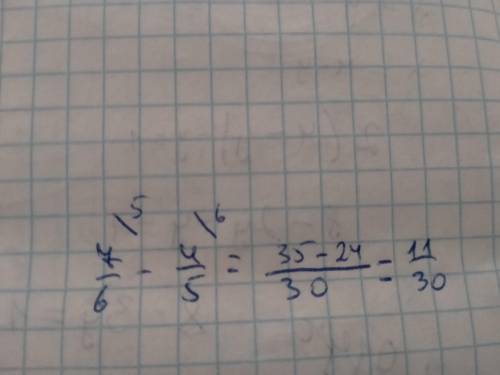 7/6 \5 - 4/5 \6 = (35-24)/30 = 11/30